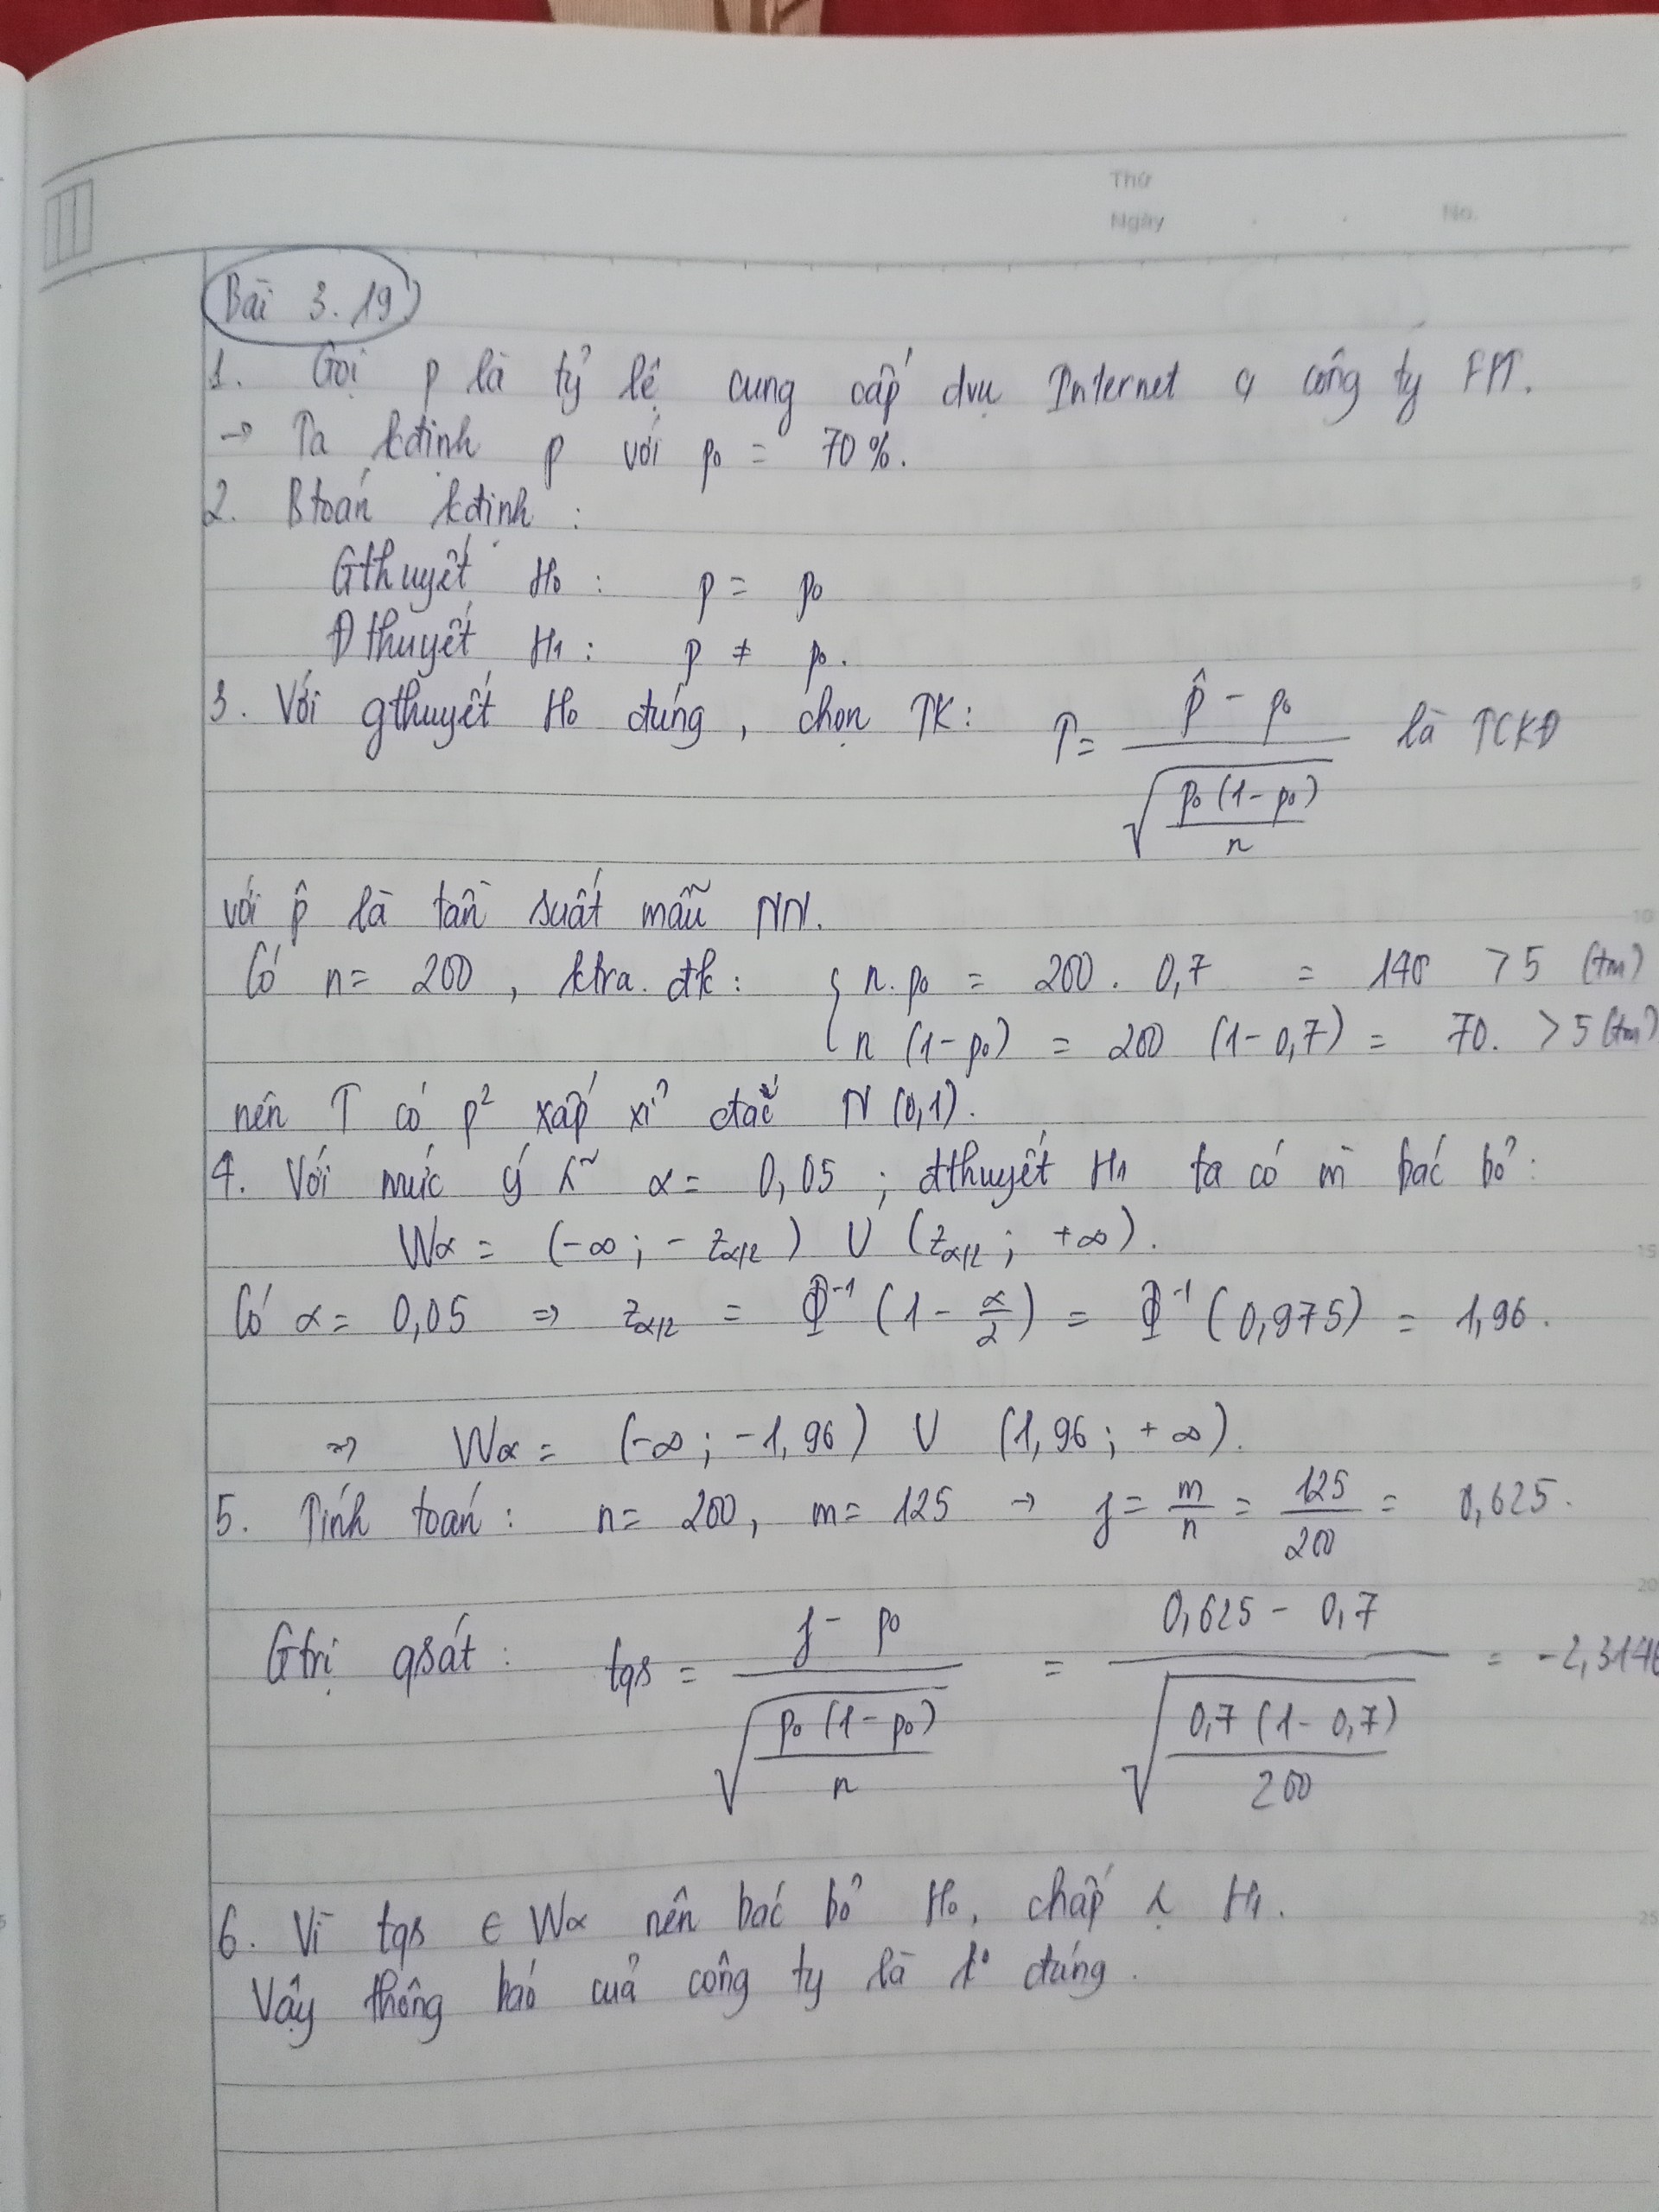 Thứ
Ngày . . No.
Bài 3.19
1. Gọi p là tỷ lệ cung cấp dvụ Internet công ty FPT.
→ Ta kđịnh p với p₀ = 70%.
2. Btoán kđịnh :
Gthuyết H₀ : p = p₀
Đthuyết H₁ : p ≠ p₀.
3. Với gthuyết H₀ đúng, chọn TK: T = (p̂ - p₀) / √(p₀(1-p₀)/n) là TCKĐ
với p̂ là tần suất mẫu NN.
Có n = 200, ktra. đk: { n.p₀ = 200. 0,7 = 140 > 5 (tm)
n (1-p₀) = 200 (1-0,7) = 70. > 5 (tm)
nên T có p² xấp xỉ N(0,1).
4. Với mức ý α = 0,05 ; đthuyết H₁ ta có m̀ bác bỏ:
Wα = (-∞; -z_α/2) ∪ (z_α/2; +∞).
Có α = 0,05 ⇒ z_α/2 = Φ⁻¹(1 - α/2) = Φ⁻¹(0,975) = 1,96.
⇒ Wα = (-∞; -1,96) ∪ (1,96; +∞).
5. Tính toán: n = 200, m = 125 → f = m/n = 125/200 = 0,625.
Gtrị qsát: tqs = (f - p₀) / √(p₀(1-p₀)/n) = (0,625 - 0,7) / √(0,7(1-0,7)/200) = -2,314
6. Vì tqs ∈ Wα nên bác bỏ H₀, chấp H₁.
Vậy thông báo của công ty là k° đúng.
5
10
15
20
25